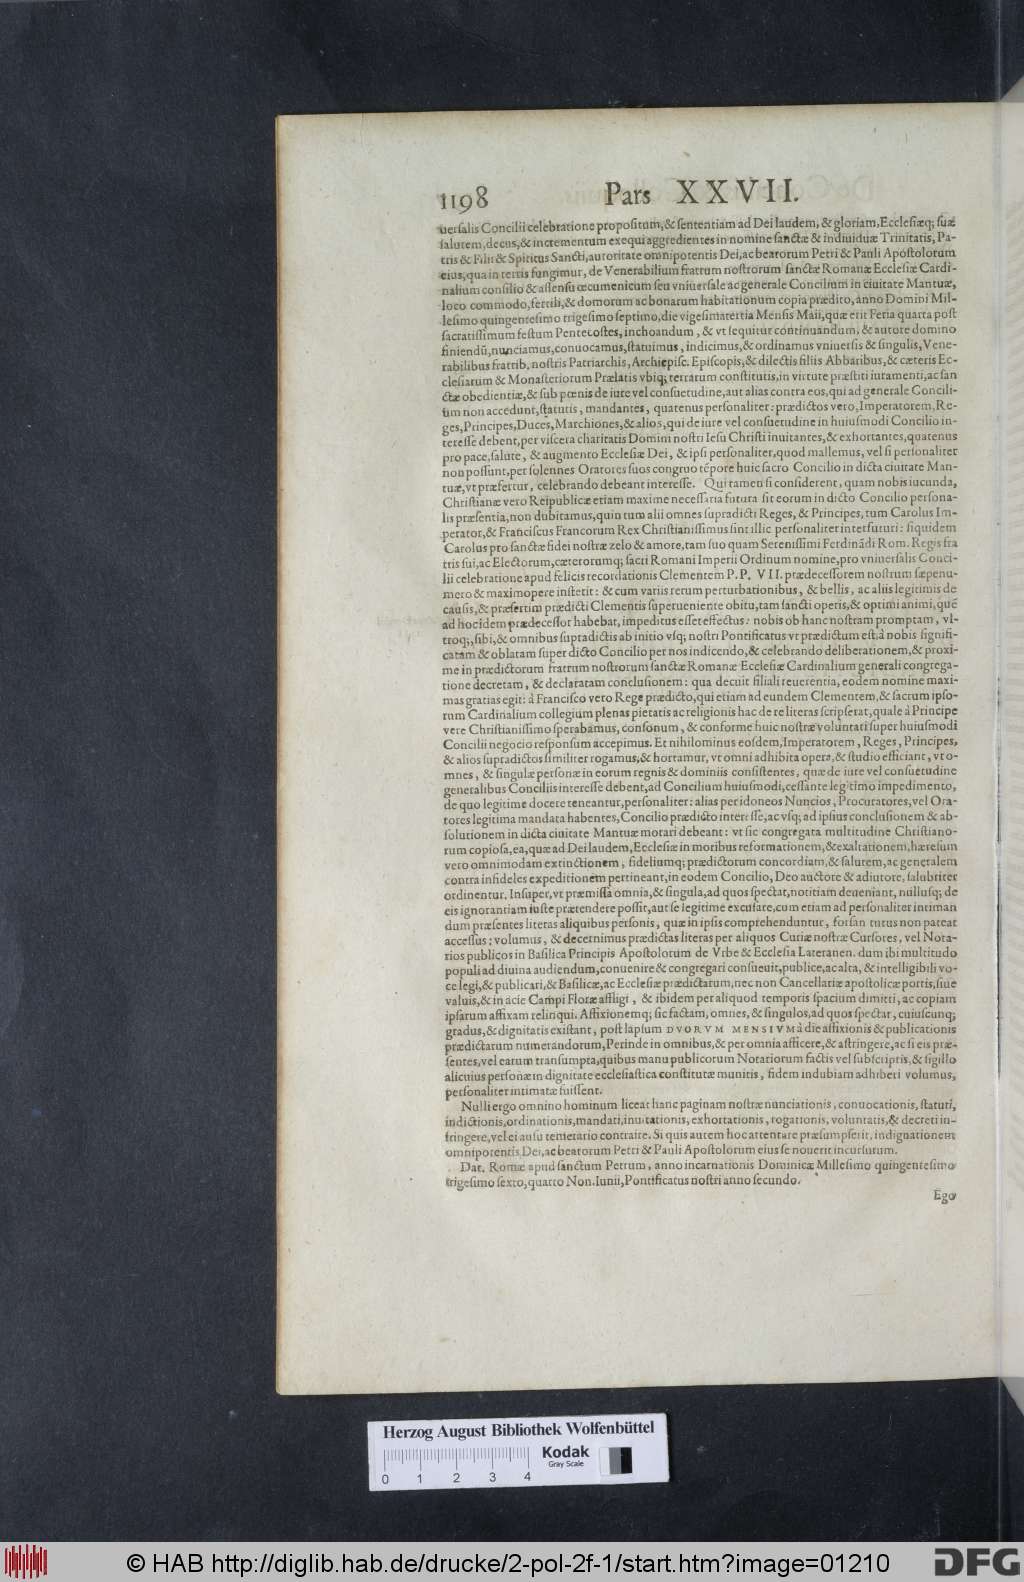 1198 Pars XXVII.
uersalis Concilii celebratione propositum, & sententiam ad Dei laudem, & gloriam, Ecclesiæq; suæ
salutem, decus, & incrementum exequi aggredientes in nomine sanctæ & indiuiduæ Trinitatis, Pa-
tris & Filii & Spiritus Sancti, autoritate omnipotentis Dei, ac beatorum Petri & Pauli Apostolorum
eius, qua in terris fungimur, de Venerabilium fratrum nostrorum sanctæ Romanæ Ecclesiæ Cardi-
nalium consilio & assensu œcumenicum seu vniuersale ac generale Concilium in ciuitate Mantuæ,
loco commodo, fertili, & domorum ac bonarum habitationum copia prædito, anno Domini Mil-
lesimo quingentesimo trigesimo septimo, die vigesimatertia Mensis Maii, quæ erit Feria quarta post
sacratissimum festum Pentecostes, inchoandum, & vt sequitur continuandum, & autore domino
finiendū, nunciamus, conuocamus, statuimus, indicimus, & ordinamus vniuersis & singulis, Vene-
rabilibus fratrib. nostris Patriarchis, Archiepisc. Episcopis, & dilectis filiis Abbatibus, & cæteris Ec-
clesiarum & Monasteriorum Prælatis vbiq; terrarum constitutis, in virtute præstiti iuramenti, ac san
ctæ obedientiæ, & sub pœnis de iure vel consuetudine, aut alias contra eos, qui ad generale Concili-
um non accedunt, statutis, mandantes, quatenus personaliter: prædictos vero, Imperatorem, Re-
ges, Principes, Duces, Marchiones, & alios, qui de iure vel consuetudine in huiusmodi Concilio in-
teresse debent, per viscera charitatis Domini nostri Iesu Christi inuitantes, & exhortantes, quatenus
pro pace, salute, & augmento Ecclesiæ Dei, & ipsi personaliter, quod mallemus, vel si personaliter
non possunt, per solennes Oratores suos congruo tēpore huic sacro Concilio in dicta ciuitate Man-
tuæ, vt præfertur, celebrando debeant interesse. Qui tamen si considerent, quam nobis iucunda,
Christianæ vero Reipublicæ etiam maxime necessaria futura sit eorum in dicto Concilio persona-
lis præsentia, non dubitamus, quin tum alii omnes supradicti Reges, & Principes, tum Carolus Im-
perator, & Franciscus Francorum Rex Christianissimus sint illic personaliter interfuturi: siquidem
Carolus pro sanctæ fidei nostræ zelo & amore, tam suo quam Serenissimi Ferdinādi Rom. Regis fra
tris sui, ac Electorum, cæterorumq; sacri Romani Imperii Ordinum nomine, pro vniuersalis Conci-
lii celebratione apud felicis recordationis Clementem P.P. VII. prædecessorem nostrum sæpenu-
mero & maximopere institerit: & cum variis rerum perturbationibus, & bellis, ac aliis legitimis de
causis, & præsertim prædicti Clementis superueniente obitu, tam sancti operis, & optimi animi, quē
ad hoc idem prædecessor habebat, impeditus esset effectus: nobis ob hanc nostram promptam, vl-
troq; sibi, & omnibus supradictis ab initio vsq; nostri Pontificatus vt prædictum est, à nobis signifi-
catam & oblatam super dicto Concilio per nos indicendo, & celebrando deliberationem, & proxi-
me in prædictorum fratrum nostrorum sanctæ Romanæ Ecclesiæ Cardinalium generali congrega-
tione decretam, & declaratam conclusionem: qua decuit filiali reuerentia, eodem nomine maxi-
mas gratias egit: à Francisco vero Rege prædicto, qui etiam ad eundem Clementem, & sacrum ipso-
rum Cardinalium collegium plenas pietatis ac religionis hac de re literas scripserat, quale à Principe
vere Christianissimo sperabamus, consonum, & conforme huic nostræ voluntati super huiusmodi
Concilii negocio responsum accepimus. Et nihilominus eosdem, Imperatorem, Reges, Principes,
& alios supradictos similiter rogamus, & hortamur, vt omni adhibita opera, & studio efficiant, vt o-
mnes, & singulæ personæ in eorum regnis & dominiis consistentes, quæ de iure vel consuetudine
generalibus Conciliis interesse debent, ad Concilium huiusmodi, cessante legitimo impedimento,
de quo legitime docere teneantur, personaliter: alias per idoneos Nuncios, Procuratores, vel Ora-
tores legitima mandata habentes, Concilio prædicto interesse, ac vsq; ad ipsius conclusionem & ab-
solutionem in dicta ciuitate Mantuæ morari debeant: vt sic congregata multitudine Christiano-
rum copiosa, ea, quæ ad Dei laudem, Ecclesiæ in moribus reformationem, & exaltationem, hæresum
vero omnimodam extinctionem, fideliumq; prædictorum concordiam, & salutem, ac generalem
contra infideles expeditionem pertineant, in eodem Concilio, Deo auctore & adiutore, salubriter
ordinentur. Insuper, vt præmissa omnia, & singula, ad quos spectat, notitiam deueniant, nullusq; de
eis ignorantiam iuste prætendere possit, aut se legitime excusare, cum etiam ad personaliter intiman
dum præsentes literas aliquibus personis, quæ in ipsis comprehenduntur, forsan tutus non pateat
accessus: volumus, & decernimus prædictas literas per aliquos Curiæ nostræ Cursores, vel Nota-
rios publicos in Basilica Principis Apostolorum de Vrbe & Ecclesia Lateranen. dum ibi multitudo
populi ad diuina audiendum, conuenire & congregari consueuit, publice, ac alta, & intelligibili vo-
ce legi, & publicari, & Basilicæ, ac Ecclesiæ prædictarum, nec non Cancellariæ apostolicæ portis, siue
valuis, & in acie Campi Floræ affligi, & ibidem per aliquod temporis spacium dimitti, ac copiam
ipsarum affixam relinqui. Affixionemq; sic factam, omnes, & singulos, ad quos spectat, cuiuscunq;
gradus, & dignitatis existant, post lapsum DVORVM MENSIVM à die affixionis & publicationis
prædictarum numerandorum, Perinde in omnibus, & per omnia afficere, & astringere, ac si eis præ-
sentes, vel earum transumpta, quibus manu publicorum Notariorum factis vel subscriptis, & sigillo
alicuius personæ in dignitate ecclesiastica constitutæ munitis, fidem indubiam adhiberi volumus,
personaliter intimatæ fuissent.
Nulli ergo omnino hominum liceat hanc paginam nostræ nunciationis, conuocationis, statuti,
indictionis, ordinationis, mandati, inuitationis, exhortationis, rogationis, voluntatis, & decreti in-
fringere, vel ei ausu temerario contraire. Si quis autem hoc attentare præsumpserit, indignationem
omnipotentis Dei, ac beatorum Petri & Pauli Apostolorum eius se nouerit incursurum.
Dat. Romæ apud sanctum Petrum, anno incarnationis Dominicæ Millesimo quingentesimo
trigesimo sexto, quarto Non. Iunii, Pontificatus nostri anno secundo.
Ego
Herzog August Bibliothek Wolfenbüttel
0 1 2 3 4
Kodak
Gray Scale
© HAB http://diglib.hab.de/drucke/2-pol-2f-1/start.htm?image=01210
DFG